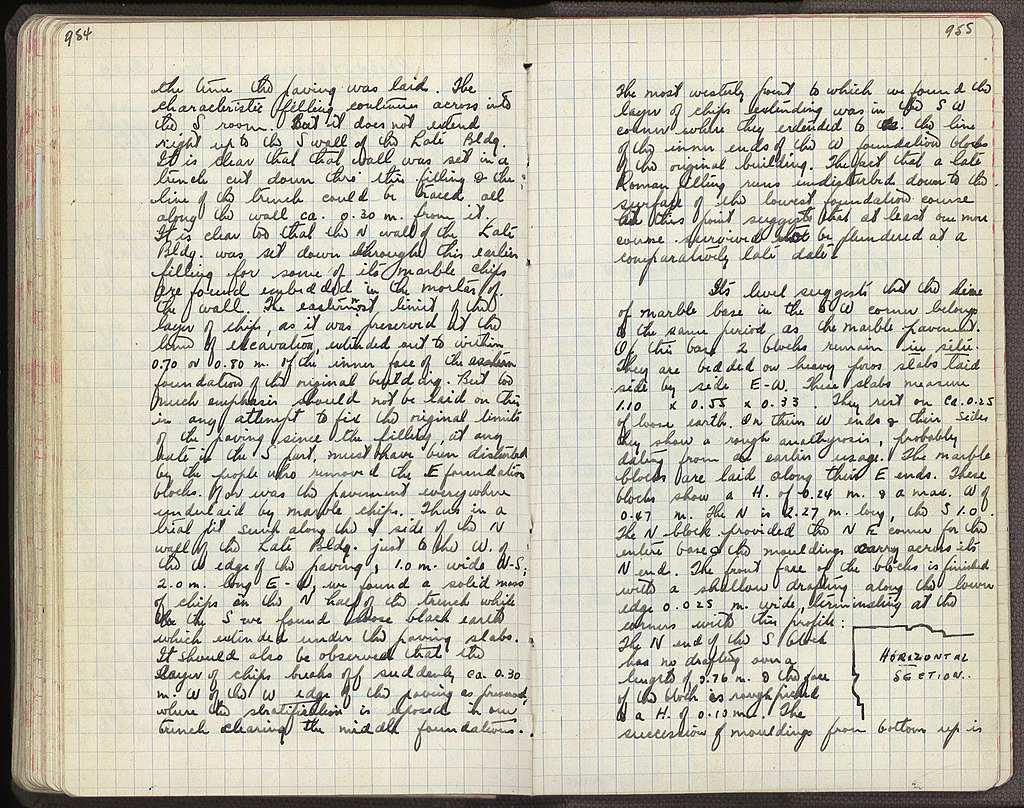 984
the time the paving was laid. The
characteristic filling continues across into
the S room. But it does not extend
right up to the S wall of the Late Bldg.
It is clear that that wall was set in a
trench cut down thro' this filling & the
line of the trench could be traced all
along the wall ca. 0.30 m. from it.
It is clear too that the N wall of the Late
Bldg. was set down through this earlier
filling for some of its marble chips
are found embedded in the mortar of
the wall. The easternmost limit of the
layer of chips, as it was preserved at the
time of excavation, extended out to within
0.70 or 0.80 m. of the inner face of the eastern
foundation of the original building. But too
much emphasis should not be laid on this
in any attempt to fix the original limits
of the paving since the filling, at any
rate in the S part, must have been disturbed
by the people who removed the E foundation
blocks. Nor was the pavement everywhere
underlaid by marble chips. Thus in a
trial pit sunk along the S side of the N
wall of the Late Bldg. just to the W. of
the W edge of the paving, 1.0 m. wide N-S,
2.0 m. long E-W, we found a solid mass
of chips in the N half of the trench while
in the S we found loose black earth
which extended under the paving slabs.
It should also be observed that the
layer of chips breaks off suddenly ca. 0.30
m. W of the W edge of the paving as preserved,
where the stratification is exposed in our
trench clearing the middle foundations.
955
The most westerly point to which we found the
layer of chips extending was in the S W
corner where they extended to the line
of the inner ends of the W foundation blocks
of the original building. The fact that a late
Roman filling runs undisturbed down to the
surface of the lowest foundation course
at this point suggests that at least one more
course survived to be plundered at a
comparatively late date.
Its level suggests that the line
of marble base in the S W corner belongs
to the same period as the marble pavement.
Of this base 2 blocks remain in situ.
They are bedded on heavy poros slabs laid
side by side E-W. These slabs measure
1.10 x 0.55 x 0.33. They rest on ca. 0.25
of loose earth. On their W ends & their sides
they show a rough anathyrosis, probably
dating from an earlier usage. The marble
blocks are laid along their E ends. These
blocks show a H. of 0.24 m. & a max. W of
0.47 m. The N is 2.27 m. long, the S 1.0.
The N block provided the N E corner for the
entire base & the mouldings carry across its
N end. The front face of the blocks is finished
with a shallow drafting along the lower
edge 0.025 m. wide, terminating at the
corners with this profile:
The N end of the S block
has no drafting over a
length of 0.76 m. & the face
of the block is rough picked
to a H. of 0.10 m. The
succession of mouldings from bottom up is
HORIZONTAL
SECTION.